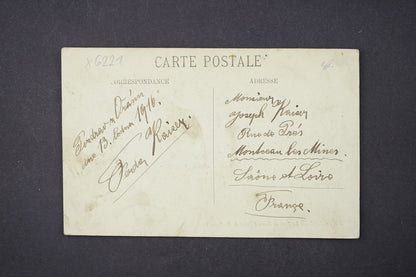 X G221
CARTE POSTALE
CORRESPONDANCE
ADRESSE
Pozdrav z Oránu
dne 13. ledna 1916.
Kaiser
Monsieur
Joseph Kaiser
Rue de Prés
Montceau les Mines.
Saône et Loire
France.